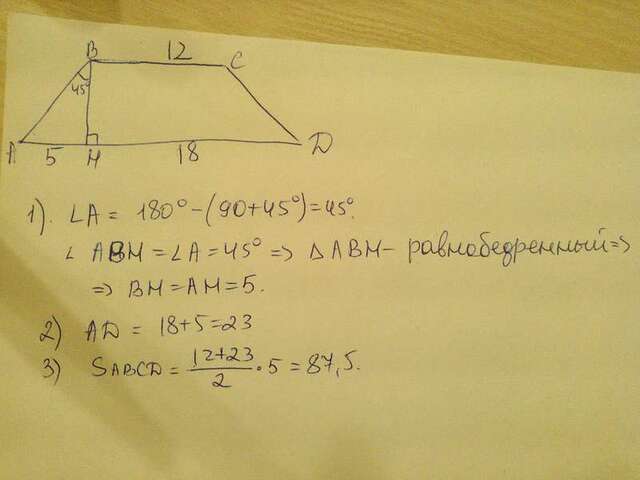 B 12 C
45°
A 5 H 18 D
1). ∠A = 180° - (90+45°)=45°.
∠ ABH = ∠A = 45° => △ABH - равнобедренный =>
=> BH = AH = 5.
2) AD = 18+5=23
3) SABCD = 12+23/2 · 5 = 87,5.